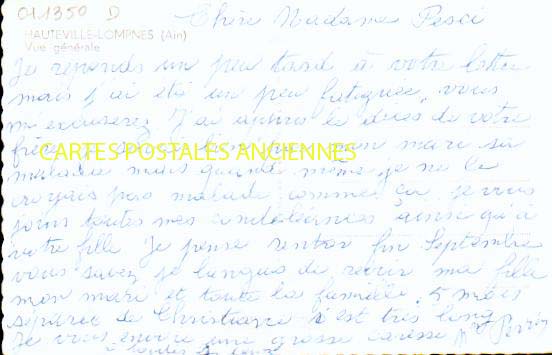 011350 D
Chère Madame Pesci
HAUTEVILLE-LOMPNES (Ain)
Vue générale
Je réponds un peu tard à votre lettre
mais j'ai été un peu fatiguée, vous
m'excuserez. J'ai appris le décès de votre
frère je mon mari sa
CARTES POSTALES ANCIENNES
maladie mais quand même je ne le
croyais pas malade comme ça je vous
joins toutes mes condoléances ainsi qu'à
votre fille. Je pense rentrer fin Septembre
vous savez je langui de revoir ma fille
mon mari et toute la famille. 5 mois
séparée de Christiane c'est très long
Je vous envoie une grosse caresse Perrin
à toutes les deux